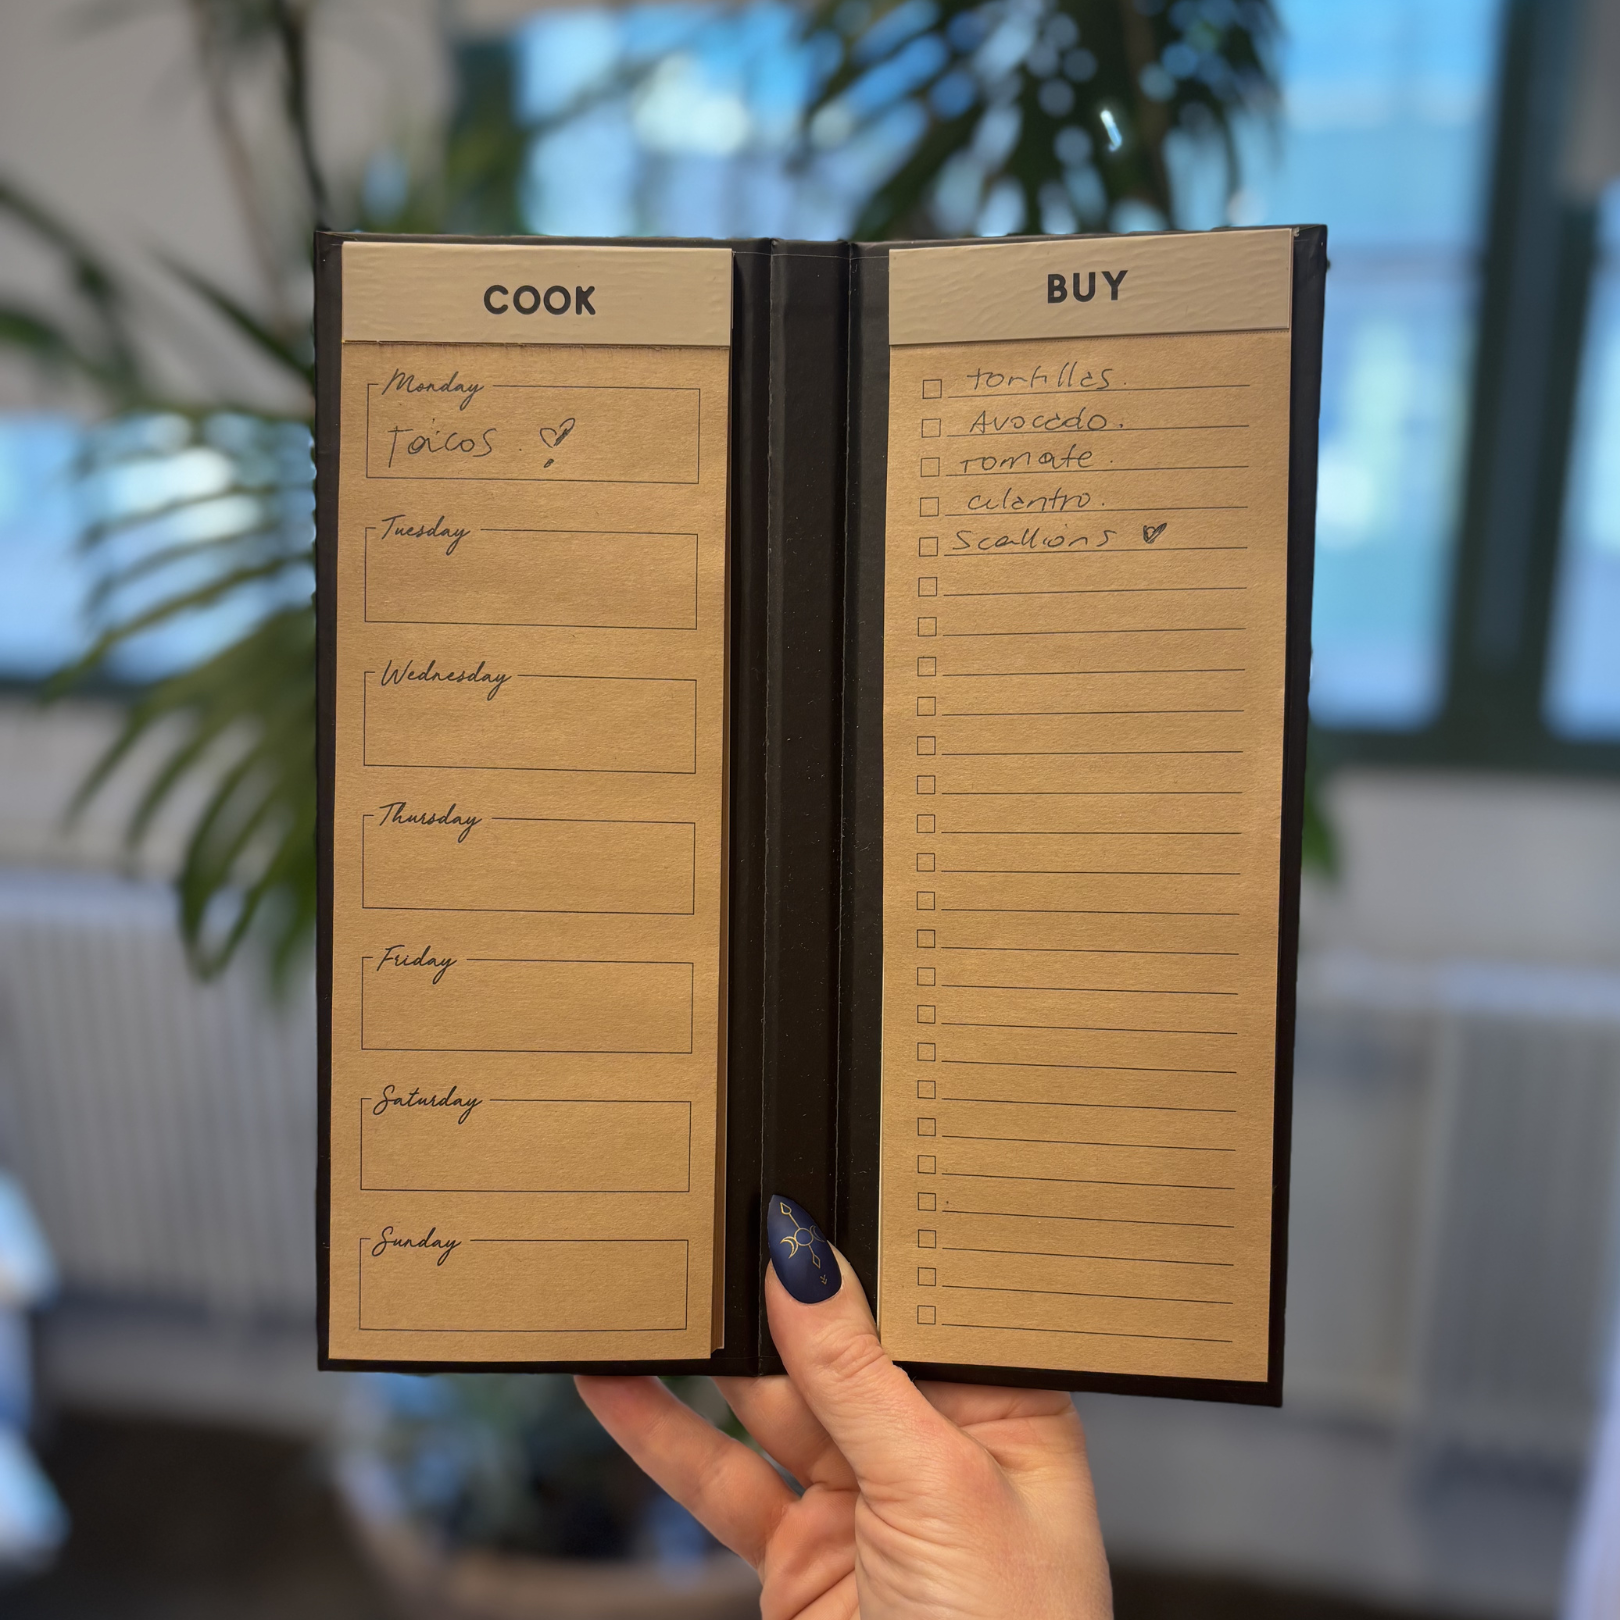 COOK
Monday
Tacos
Tuesday
Wednesday
Thursday
Friday
Saturday
Sunday
BUY
tortillas.
Avocado.
Tomate.
cilantro.
Scallions ♥